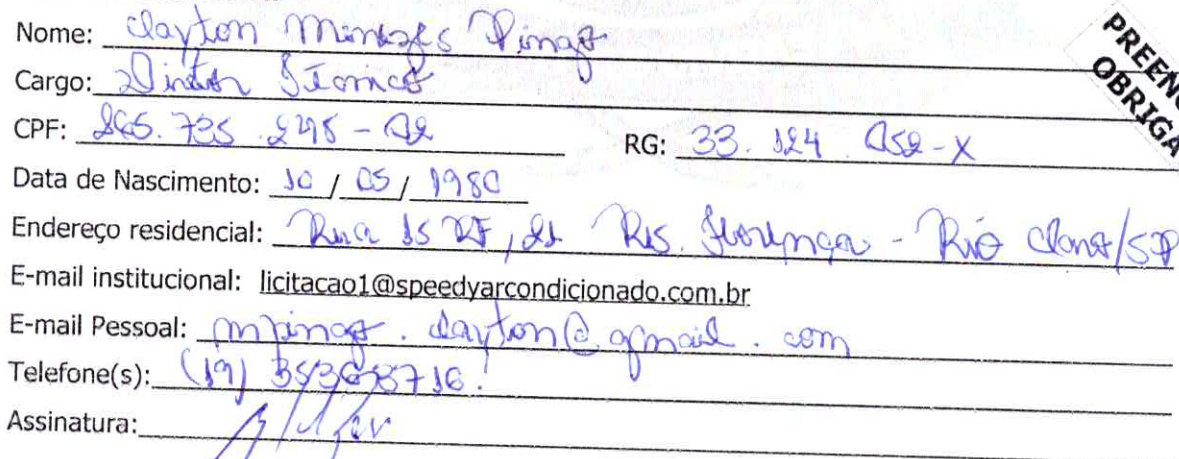 Nome: Clayton Menezes Pingo
PREENC
OBRIGA
Cargo: Diretor Técnico
CPF: 265.735.298-02 RG: 33.124.052-X
Data de Nascimento: 10 / 05 / 1980
Endereço residencial: Rua 15 RF, 21 Res. Florença - Rio Claro/SP
E-mail institucional: licitacao1@speedyarcondicionado.com.br
E-mail Pessoal: mpingo.clayton@gmail.com
Telefone(s): (19)
Assinatura: